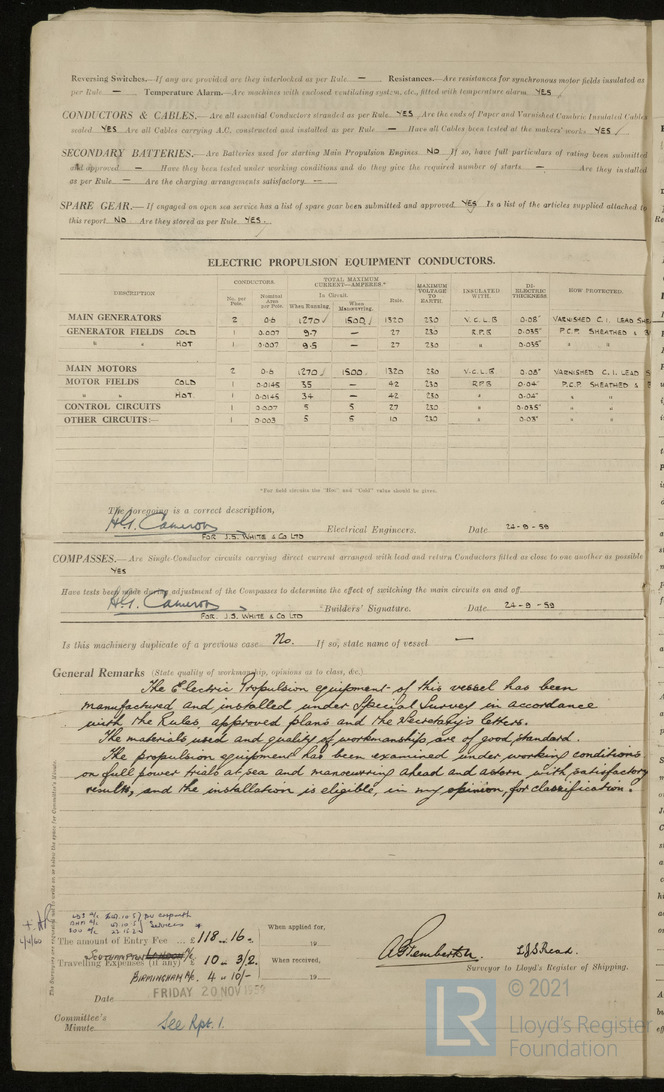 Reversing Switches.—If any are provided are they interlocked as per Rule — Resistances.—Are resistances for synchronous motor fields insulated as
per Rule — Temperature Alarm.—Are machines with enclosed ventilating system, etc., fitted with temperature alarm YES
CONDUCTORS & CABLES.—Are all essential Conductors stranded as per Rule YES Are the ends of Paper and Varnished Cambric Insulated Cables
sealed YES Are all Cables carrying A.C. constructed and installed as per Rule — Have all Cables been tested at the makers' works YES
SECONDARY BATTERIES.—Are Batteries used for starting Main Propulsion Engines NO If so, have full particulars of rating been submitted
and approved — Have they been tested under working conditions and do they give the required number of starts — Are they installed
as per Rule — Are the charging arrangements satisfactory —
SPARE GEAR.—If engaged on open sea service has a list of spare gear been submitted and approved YES Is a list of the articles supplied attached to
this report NO Are they stored as per Rule YES
ELECTRIC PROPULSION EQUIPMENT CONDUCTORS.
DESCRIPTION CONDUCTORS. TOTAL MAXIMUM CURRENT—AMPERES.* MAXIMUM VOLTAGE TO EARTH INSULATED WITH. DI-ELECTRIC THICKNESS HOW PROTECTED.
No. per Pole. Nominal Area per Pole. In Circuit. When Running. When Manœuvring. Rule.
MAIN GENERATORS 2 0·6 1270 1500 1320 230 V.C.L.B 0·08" VARNISHED C.I. LEAD SHE
GENERATOR FIELDS COLD 1 0.007 9·7 — 27 230 R.P.B 0.035" P.C.P. SHEATHED &
" " HOT 1 0.007 9·5 — 27 230 " 0.035" " "
MAIN MOTORS 2 0·6 1270 1500 1320 230 V.C.L.B 0.08" VARNISHED C.I. LEAD S
MOTOR FIELDS COLD 1 0.0145 35 — 42 230 R.P.B 0·04" P.C.P. SHEATHED &
" " HOT 1 0.0145 34 — 42 230 " 0.04" " "
CONTROL CIRCUITS 1 0.007 5 5 27 230 " 0.035" " "
OTHER CIRCUITS:— 1 0.003 5 5 10 230 " 0.03" " "
*For field circuits the "Hot" and "Cold" value should be given.
The foregoing is a correct description,
H.G. Cameron
FOR J.S. WHITE & CO LTD Electrical Engineers. Date 24-9-59
COMPASSES.—Are Single-Conductor circuits carrying direct current arranged with lead and return Conductors fitted as close to one another as possible
YES
Have tests been made during adjustment of the Compasses to determine the effect of switching the main circuits on and off
H.G. Cameron
FOR J.S. WHITE & CO LTD Builders' Signature. Date 24-9-59
Is this machinery duplicate of a previous case No. If so, state name of vessel —
General Remarks (State quality of workmanship, opinions as to class, &c.)
The Electric Propulsion equipment of this vessel has been
manufactured and installed under Special Survey in accordance
with the Rules, approved plans and the Secretary's letters.
The materials used and quality of workmanship are of good standard.
The propulsion equipment has been examined under working conditions
on full power trials at sea and manoeuvring ahead and astern with satisfactory
results, and the installation is eligible, in my opinion, for classification.
The amount of Entry Fee ... £ 118 . 16 . When applied for,
19
SOUTHAMPTON LONDON A/c
Travelling Expenses (if any) £ 10 . 3/2. When received,
BIRMINGHAM A/c. 4 . 10/- 19
A.G. Pemberton. L.J.S. Read.
Surveyor to Lloyd's Register of Shipping.
Date FRIDAY 20 NOV 1959
Committee's
Minute See Rpt. 1.
© 2021
LR Lloyd's Register
Foundation